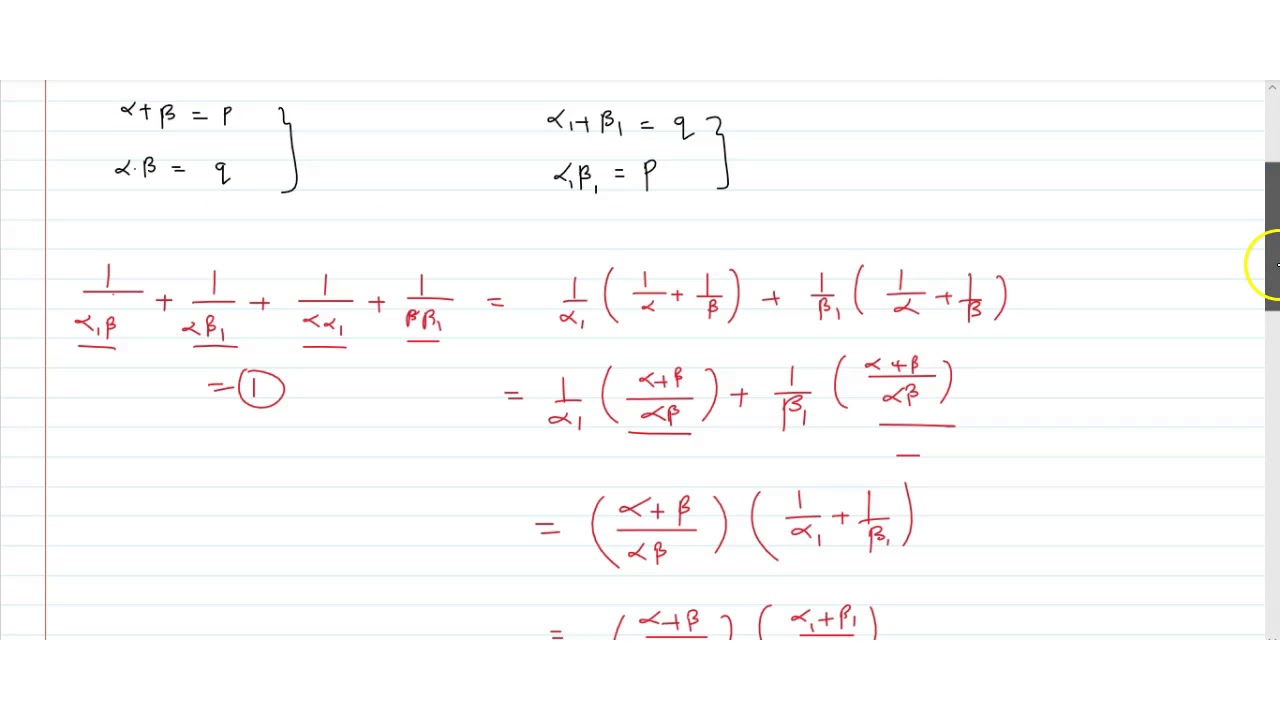 α + β = p
α₁ + β₁ = q
α · β = q
α₁β₁ = p
1/(α₁β) + 1/(αβ₁) + 1/(αα₁) + 1/(ββ₁) = 1/α₁ (1/α + 1/β) + 1/β₁ (1/α + 1/β)
= 1
= 1/α₁ ((α+β)/(αβ)) + 1/β₁ ((α+β)/(αβ))
= ((α+β)/(αβ)) (1/α₁ + 1/β₁)
= (α+β) (α₁+β₁)